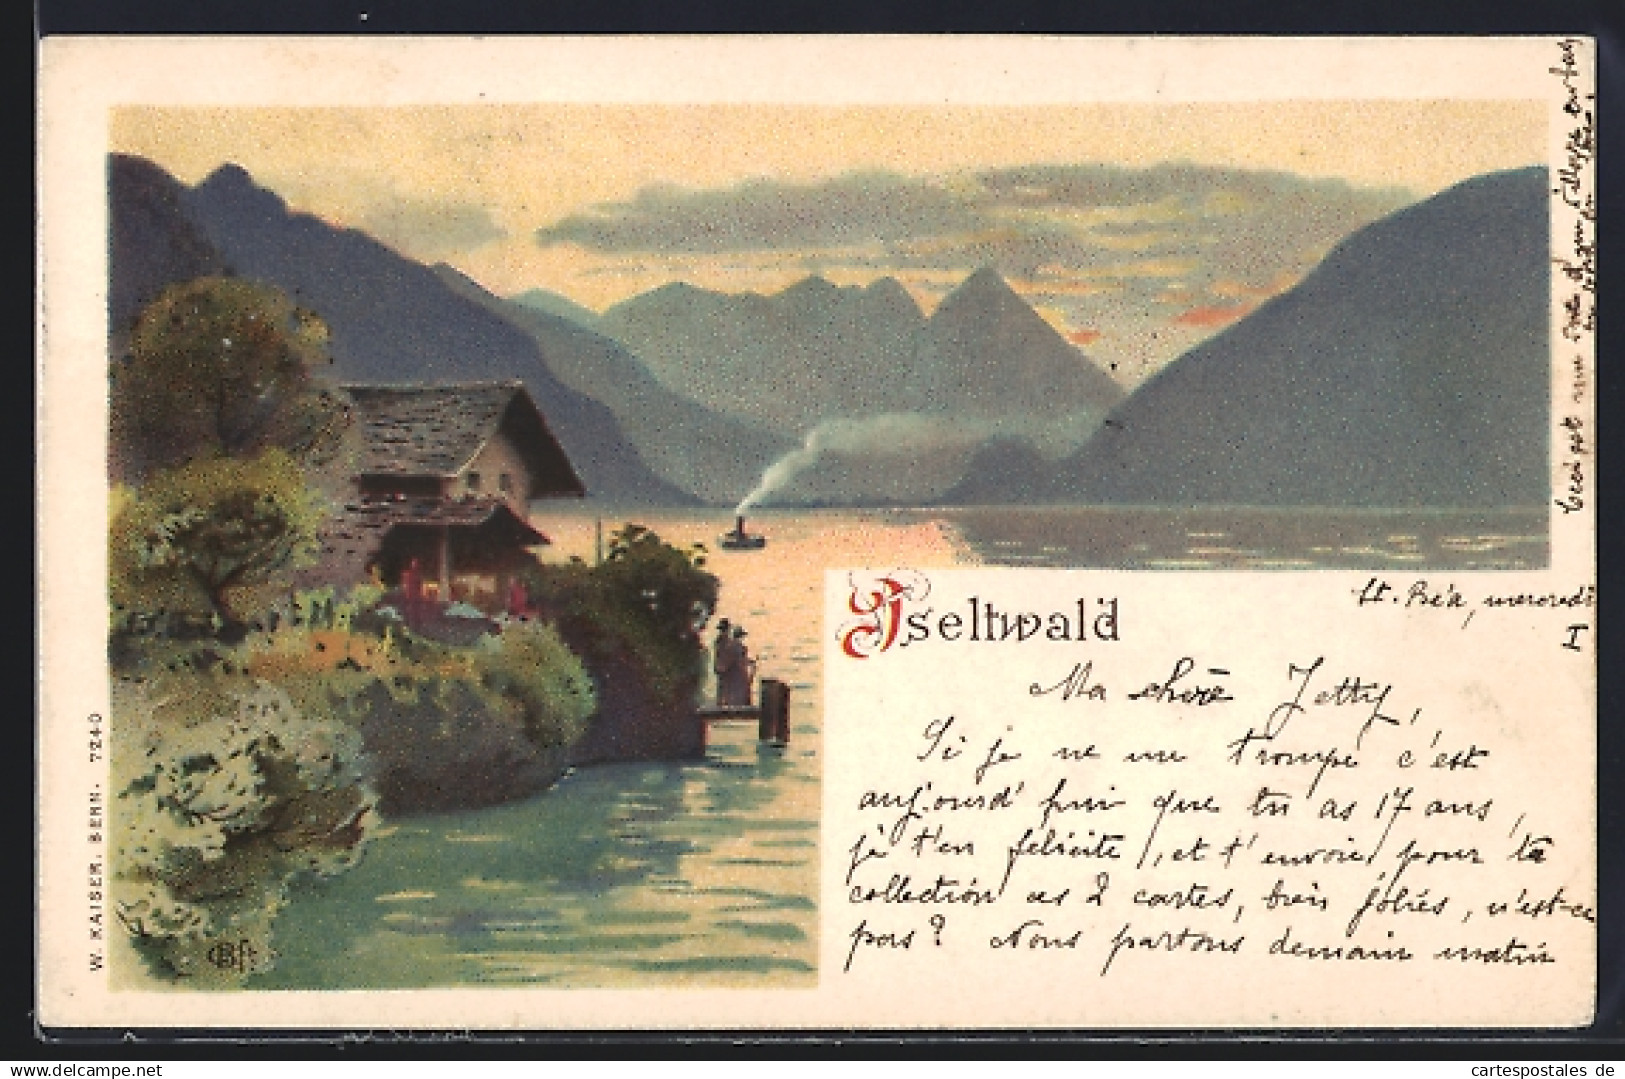 Iseltwald
St. Béa, mercredi
I
Ma chère Jetty,
Si je ne me trompe c'est
aujourd'hui que tu as 17 ans,
je t'en félicite, et t'envoie pour ta
collection ces 2 cartes, bien jolies, n'est-ce
pas? Nous partons demain matin
Ceci est une vue
W. KAISER, BERN. 7240
www.cartespostales.eu
cartespostales de